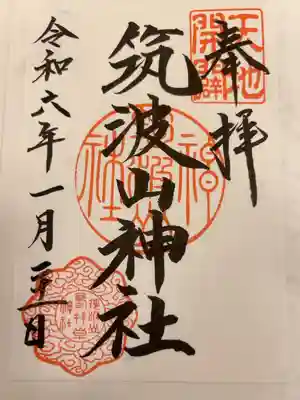 奉拝
天地
開闢
筑波山神社
令和六年一月二十一日